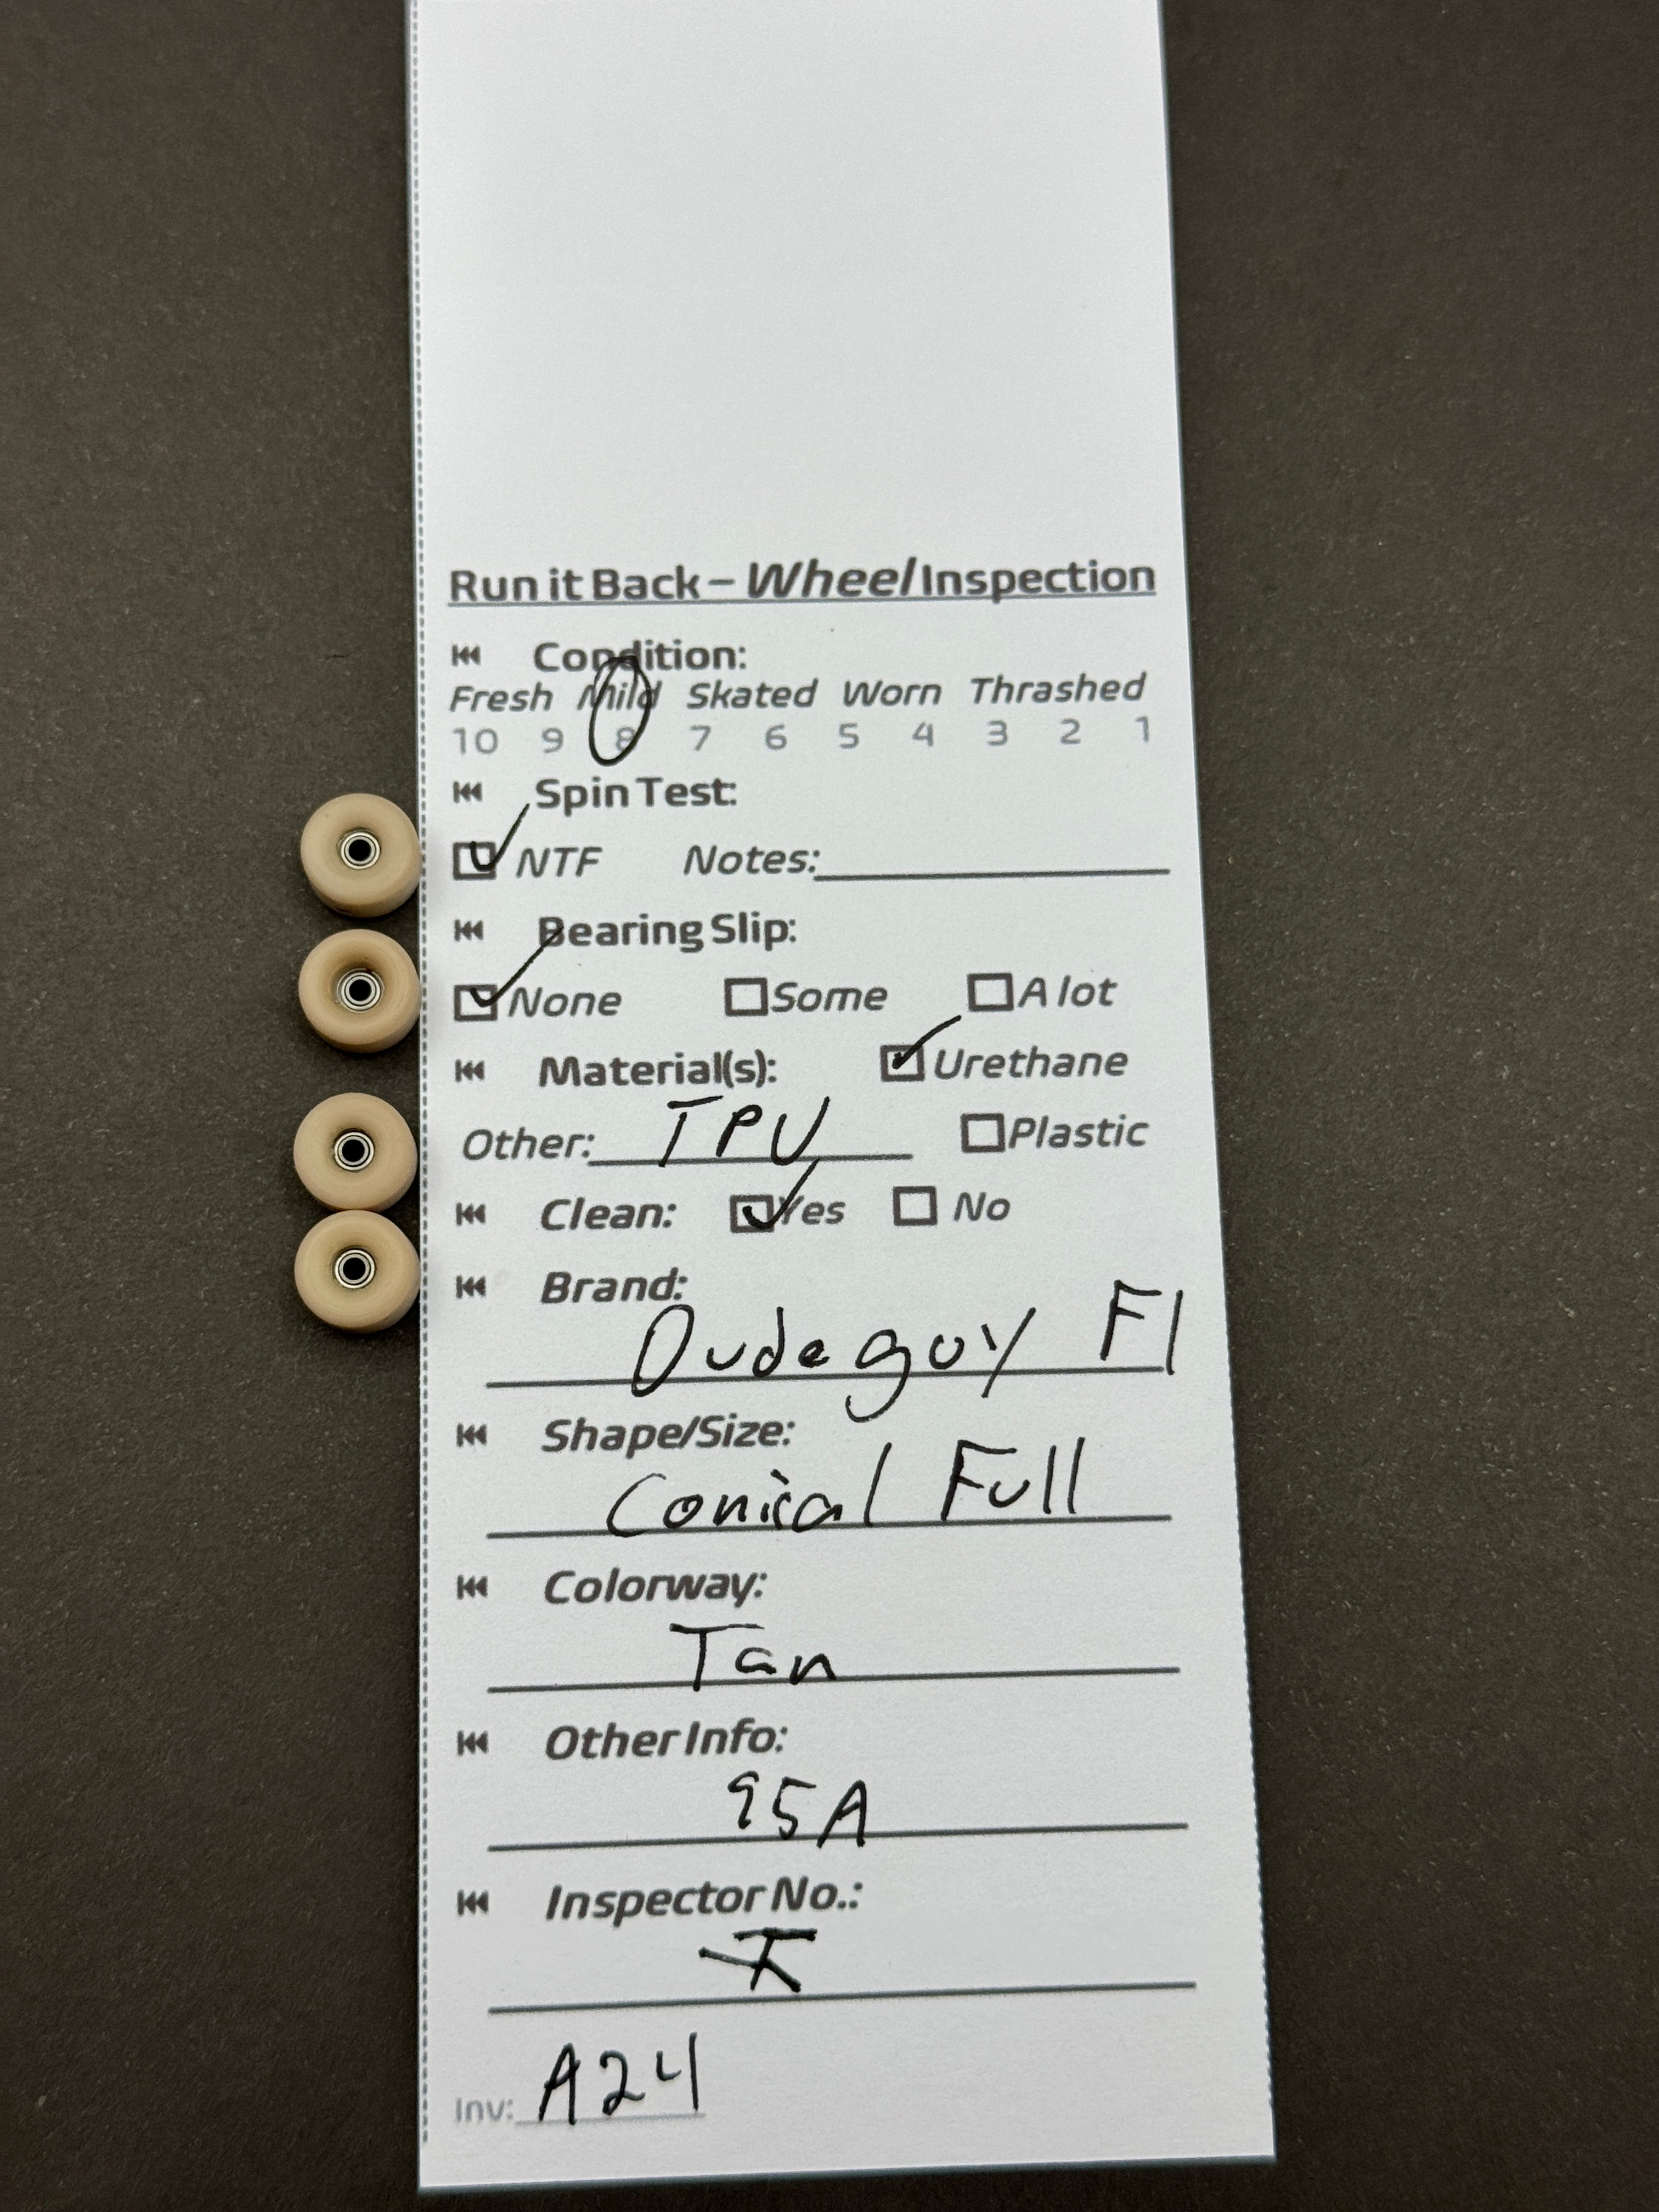 Run it Back – Wheel Inspection
Condition:
Fresh Mild Skated Worn Thrashed
10 9 8 7 6 5 4 3 2 1
Spin Test:
NTF Notes:
Bearing Slip:
None Some A lot
Material(s): Urethane
Other: TPU Plastic
Clean: Yes No
Brand:
Dudeguy F1
Shape/Size:
Conical Full
Colorway:
Tan
Other Info:
95A
Inspector No.:
Inv: A24